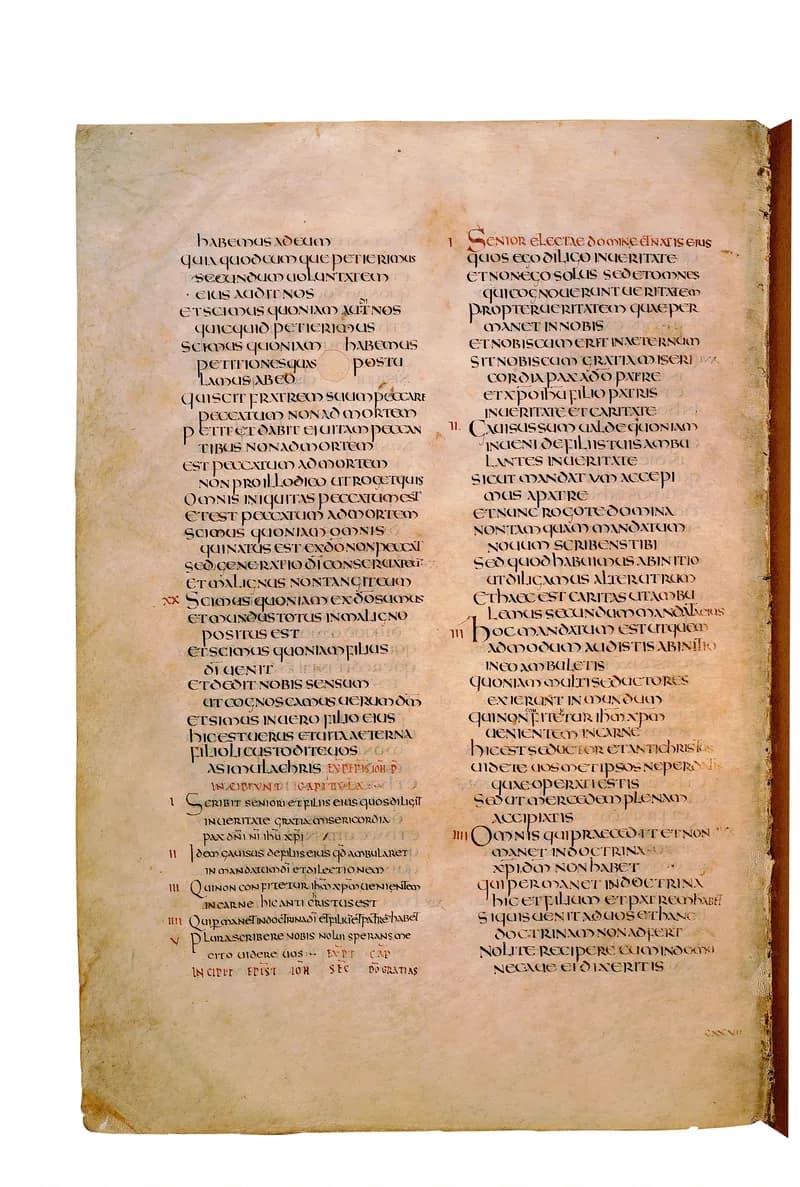 habemus ad eum
quia quodcumque petierimus
secundum uoluntatem
eius audit nos
et scimus quoniam audit nos
quicquid petierimus
scimus quoniam habemus
petitiones quas postu
lamus ab eo
qui scit fratrem suum peccare
peccatum non ad mortem
petit et dabit ei uitam peccan
tibus non ad mortem
est peccatum ad mortem
non pro illo dico ut roget quis
omnis iniquitas peccatum est
et est peccatum ad mortem
scimus quoniam omnis
qui natus est ex do non peccat
sed generatio di conseruat eum
et malignus non tangit eum
XX Scimus quoniam ex do sumus
et mundus totus in maligno
positus est
et scimus quoniam filius
di uenit
et dedit nobis sensum
ut cognoscamus uerum dm
et simus in uero filio eius
hic est uerus et uita aeterna
filioli custodite uos
a simulachris EXP EPIS IOH P
INCIPIUNT CAPITULA
I Scribit seniori et filiis eius quos diligit
in ueritate gratia misericordia
pax dni ni ihu xpi
II Idem gauisus de filiis eius qd ambularet
in mandatum di et dilectionem
III Qui non confitetur ihm xpm uenientem
in carne hic anticristus est
IIII Qui permanet in doctrina di et filium et patrem habet
V Plura scribere nobis nolui sperans me
cito uidere uos EXPT CAP
INCIPIT EPIST IOH SEC DO GRATIAS
I Senior electae domine et natis eius
quos ego diligo in ueritate
et non ego solus sed et omnes
qui cognouerunt ueritatem
propter ueritatem quae per
manet in nobis
et nobiscum erit in aeternum
sit nobiscum gratia miseri
cordia pax a do patre
et xpo ihu filio patris
in ueritate et caritate
II Gauisus sum ualde quoniam
inueni de filiis tuis ambu
lantes in ueritate
sicut mandatum accepi
mus a patre
et nunc rogo te domina
non tamquam mandatum
nouum scribens tibi
sed quod habuimus ab initio
ut diligamus alterutrum
et haec est caritas ut ambu
lemus secundum mandata eius
III hoc mandatum est ut quem
admodum audistis ab initio
in eo ambuletis
quoniam multi seductores
exierunt in mundum
qui non confitetur ihm xpm
uenientem in carne
hic est seductor et antichristus
uidete uosmetipsos ne perdatis
quae operati estis
sed ut mercedem plenam
accipiatis
IIII Omnis qui praecedit et non
manet in doctrina
xpi dm non habet
qui permanet in doctrina
hic et filium et patrem habet
si quis uenit ad uos et hanc
doctrinam non adfert
nolite recipere eum in domu
nec aue ei dixeritis